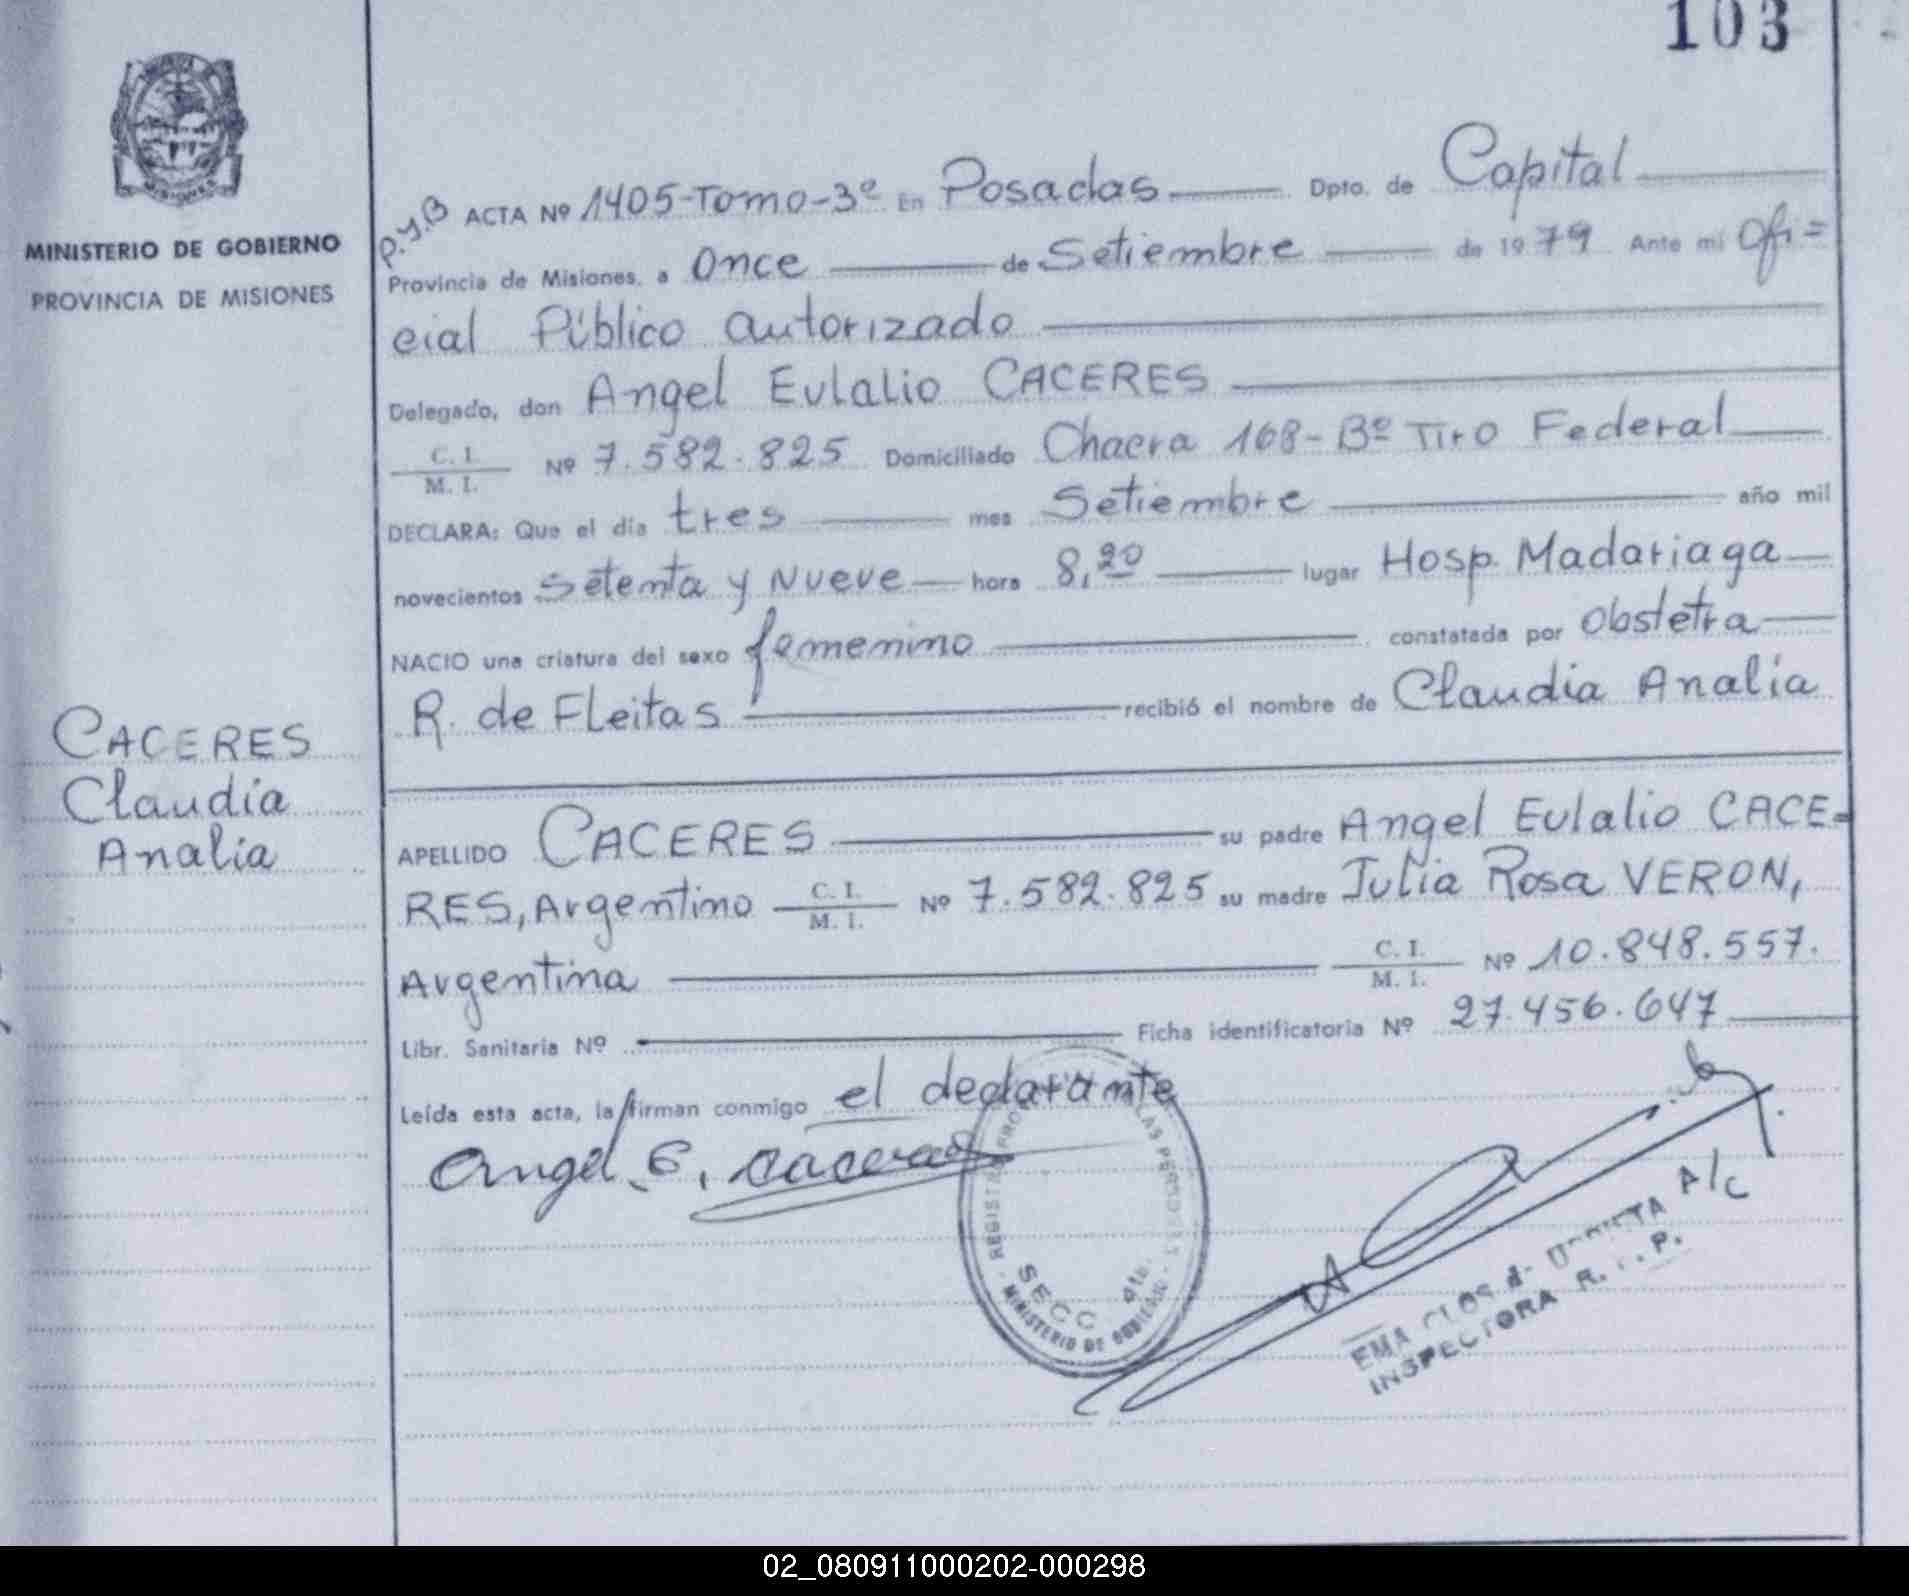 103
MINISTERIO DE GOBIERNO
PROVINCIA DE MISIONES
P.y.B ACTA Nº 1405-Tomo-3º En Posadas Dpto. de Capital
Provincia de Misiones, a Once de Setiembre de 1979 Ante mi Ofi=
cial Público autorizado
Delegado, don Angel Eulalio CACERES
C. I. / M. I. Nº 7.582.825 Domiciliado Chacra 168-Bº Tiro Federal
DECLARA: Que el día tres mes Setiembre año mil
novecientos Setenta y Nueve hora 8,20 lugar Hosp. Madariaga
NACIO una criatura del sexo femenino constatada por Obstetra
R. de Fleitas recibió el nombre de Claudia Analía
CACERES
Claudia
Analia
APELLIDO CACERES su padre Angel Eulalio CACE=
RES, Argentino C. I. / M. I. Nº 7.582.825 su madre Julia Rosa VERON,
Argentina C. I. / M. I. Nº 10.848.557.
Libr. Sanitaria Nº Ficha identificatoria Nº 27.456.647
Leída esta acta, la firman conmigo el declarante
Angel E. Caceres
LAS PERSONAS
SECC 4ta.
MINISTERIO DE GOBIERNO
A/c
EMA
INSPECTORA R. P.
02_080911000202-000298